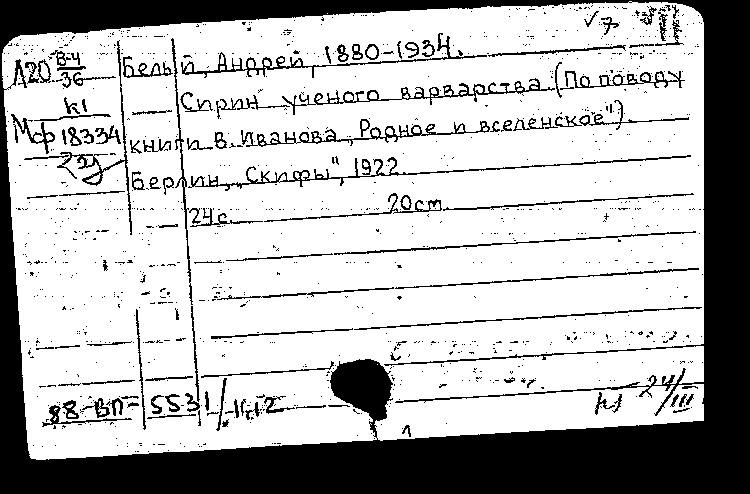 Л20 В-4/36
Белый, Андрей, 1880-1934.
Сирин ученого варварства (По поводу
к1
Мф 18334
книги В. Иванова „Родное и вселенское").
Берлин, „Скифы", 1922.
24с. 20см.
88-ВП-5531/11.12
24/III
1